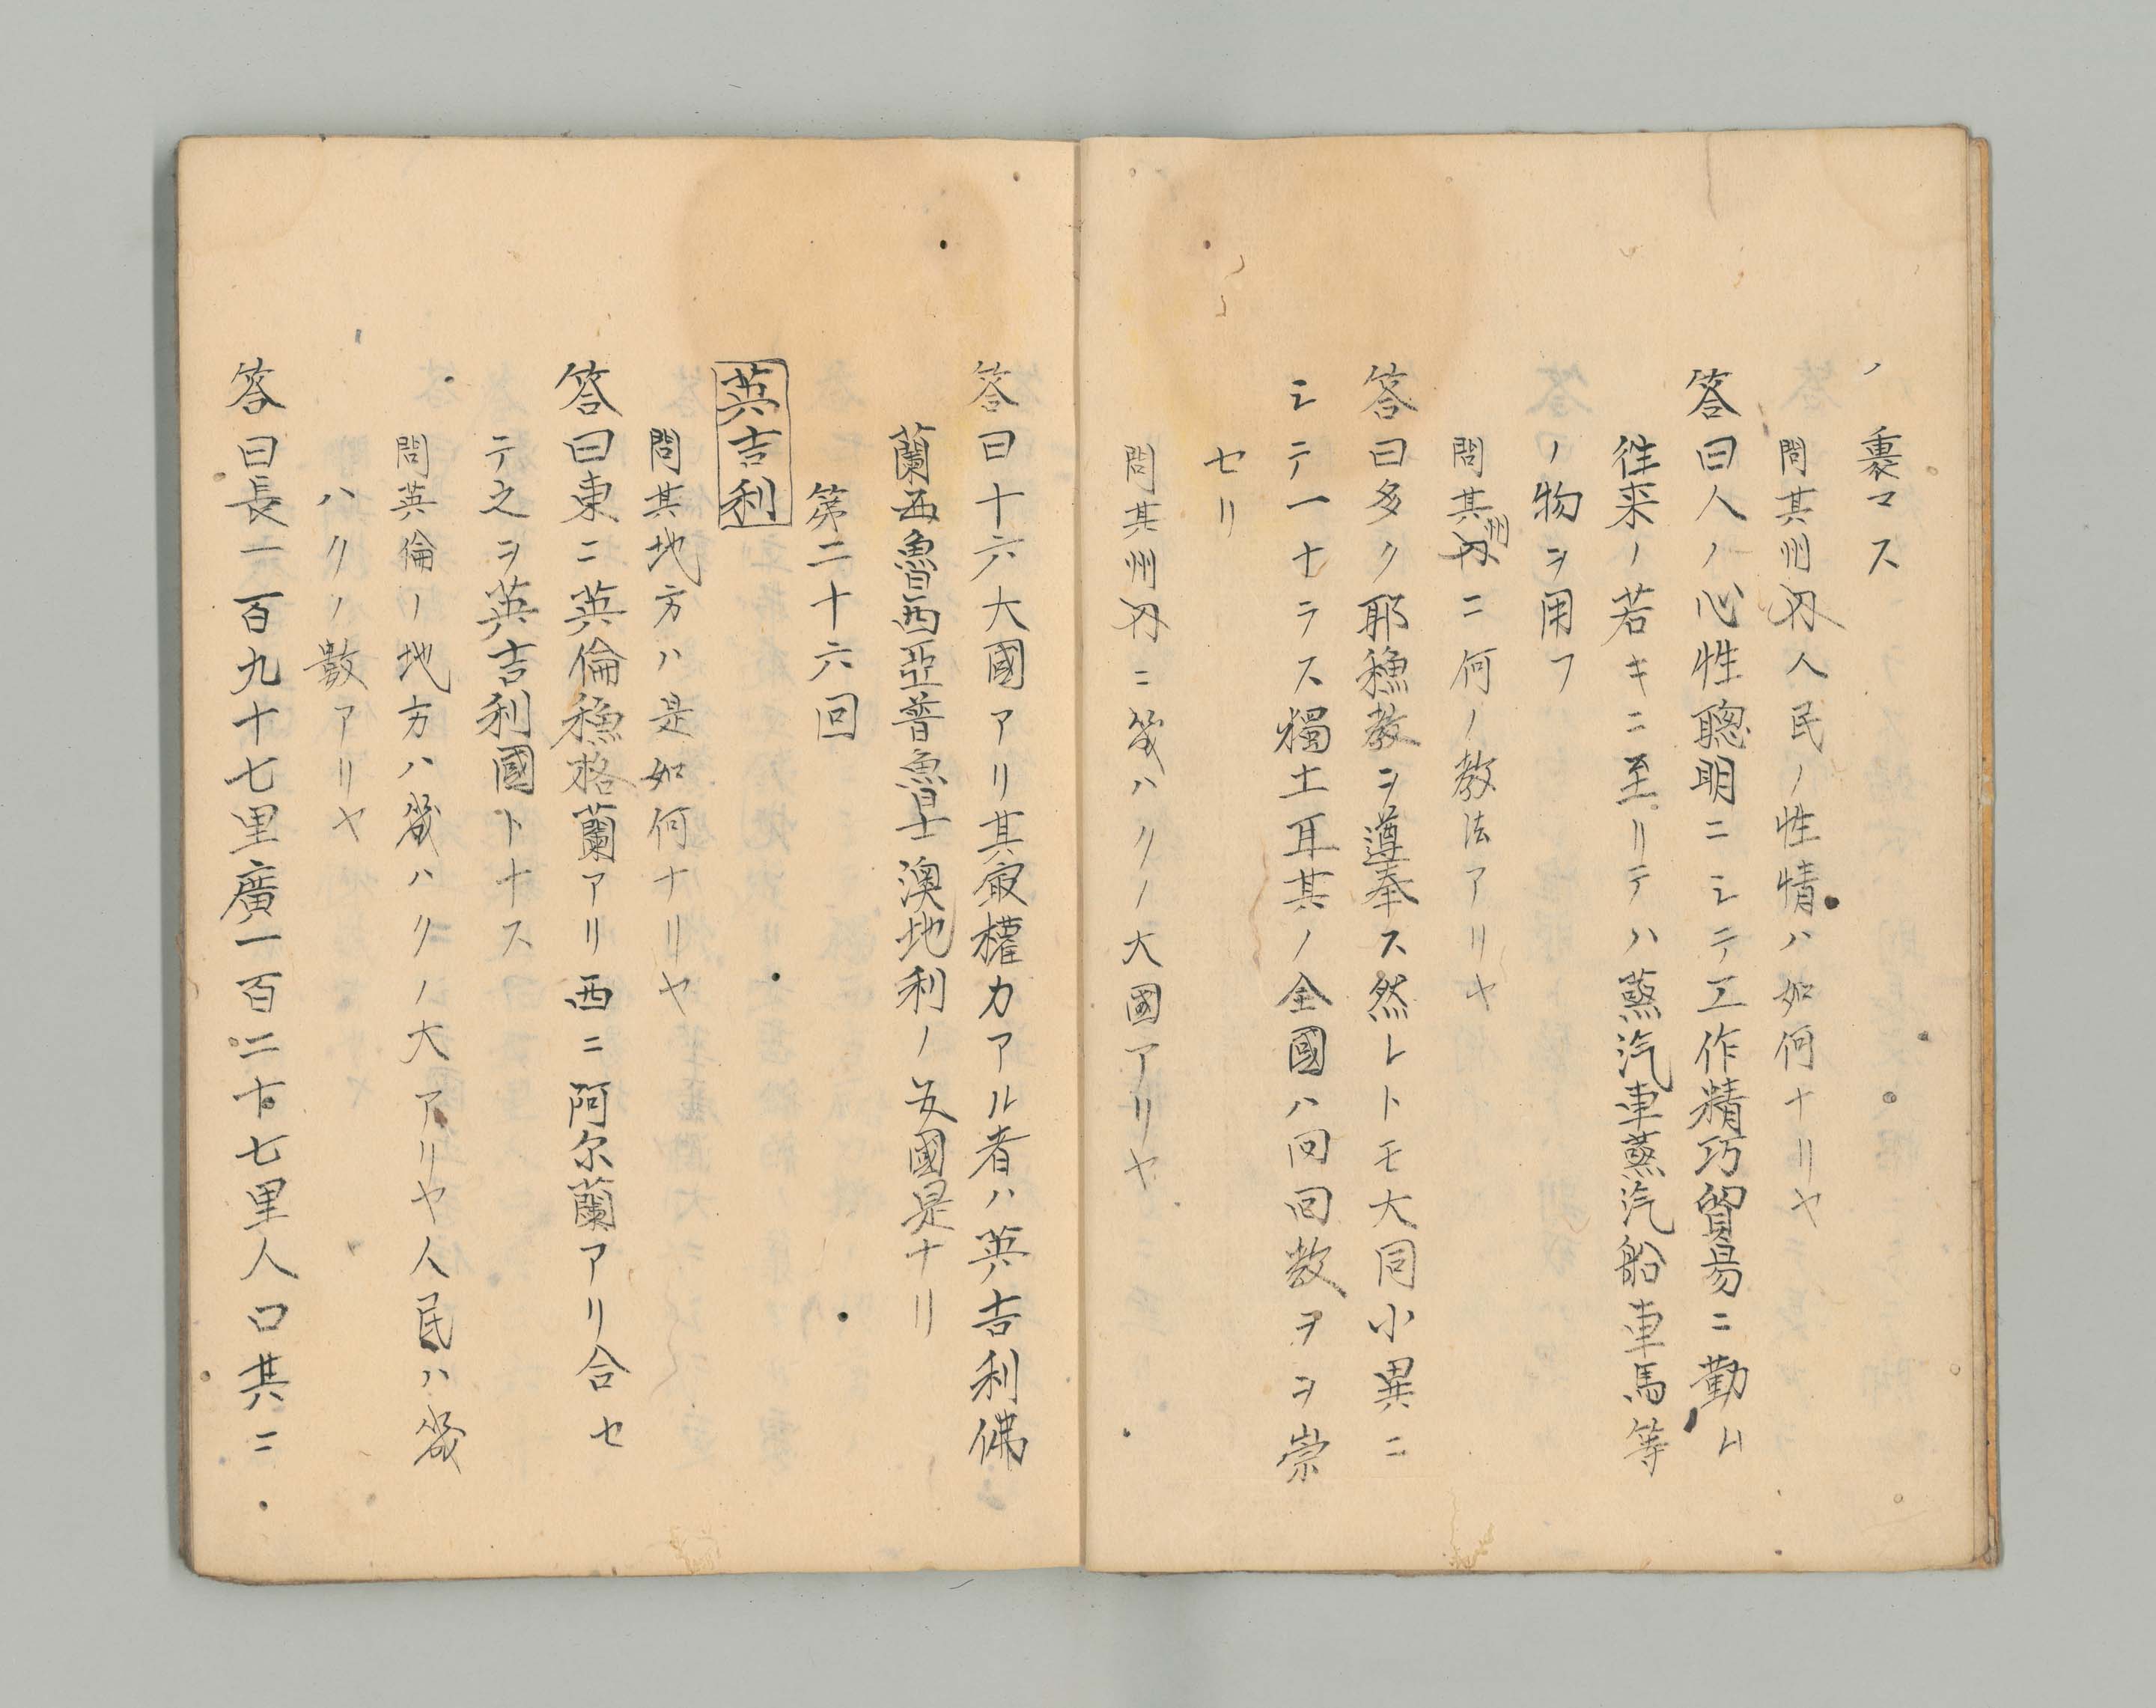 裹マス
問其州内人民ノ性情ハ如何ナリヤ
答曰人ノ心性聰明ニシテ工作精巧貿易ニ勤ム
徃来ノ若キニ至リテハ蒸汽車蒸汽船車馬等
ノ物ヲ用フ
問其州内ニ何ノ教法アリヤ
答曰多ク耶穌教ヲ遵奉ス然レトモ大同小異ニ
シテ一ナラス獨土耳其ノ全國ハ回回教ヲヲ崇
セリ
問其州内ニ幾ハクノ大國アリヤ
答曰十六大國アリ其㝡權力アル者ハ英吉利佛
蘭西魯西亞普魯士澳地利ノ五國是ナリ
第二十六回
英吉利
問其地方ハ是如何ナリヤ
答曰東ニ英倫穌格蘭アリ西ニ阿尔蘭アリ合セ
テ之ヲ英吉利國トナス
問英倫ノ地方ハ幾ハクノ大アリヤ人民ハ幾
ハクノ數アリヤ
答曰長一百九十七里廣一百二十七里人口共ニ